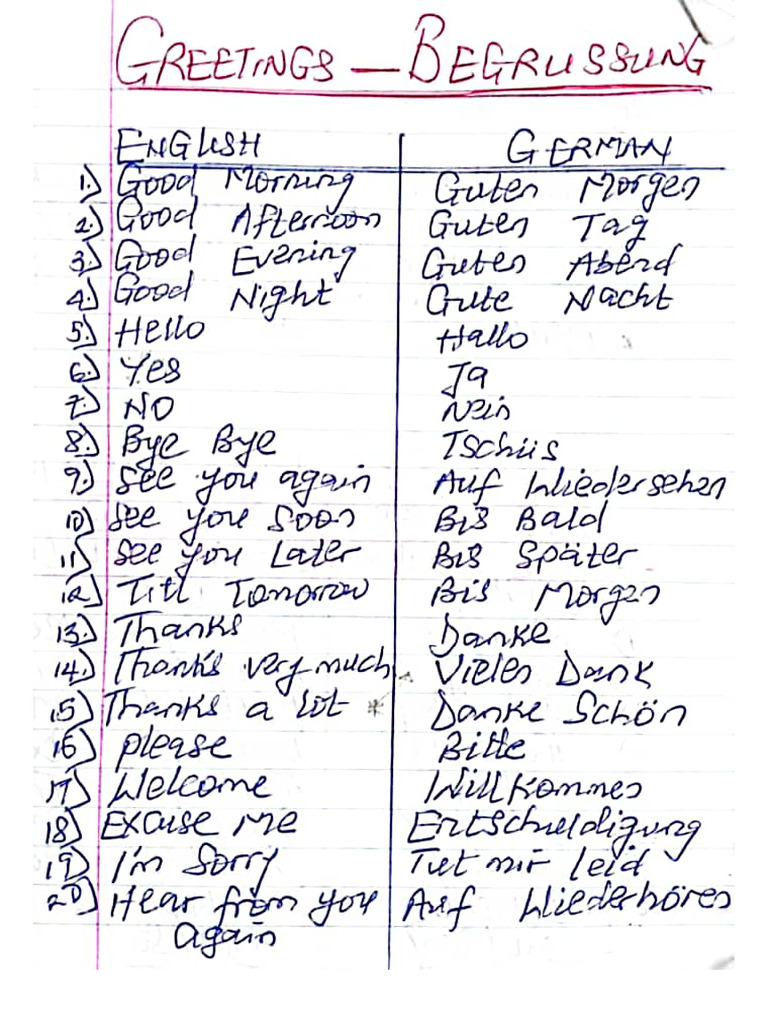 GREETINGS — BEGRUSSUNG
ENGLISH GERMAN
1.) Good Morning Guten Morgen
2.) Good Afternoon Guten Tag
3.) Good Evening Guten Abend
4.) Good Night Gute Nacht
5.) Hello Hallo
6.) Yes Ja
7.) NO Nein
8.) Bye Bye Tschüs
9.) See you again Auf Wiedersehen
10) See you Soon Bis Bald
11) See you Later Bis Später
12) Till Tomorrow Bis Morgen
13.) Thanks Danke
14.) Thanks very much Vielen Dank
15) Thanks a lot * Danke Schön
16) please Bitte
17) Welcome Willkommen
18) Excuse Me Entschuldigung
19) I'm Sorry Tut mir leid
20) Hear from you Auf Wiederhören
Again